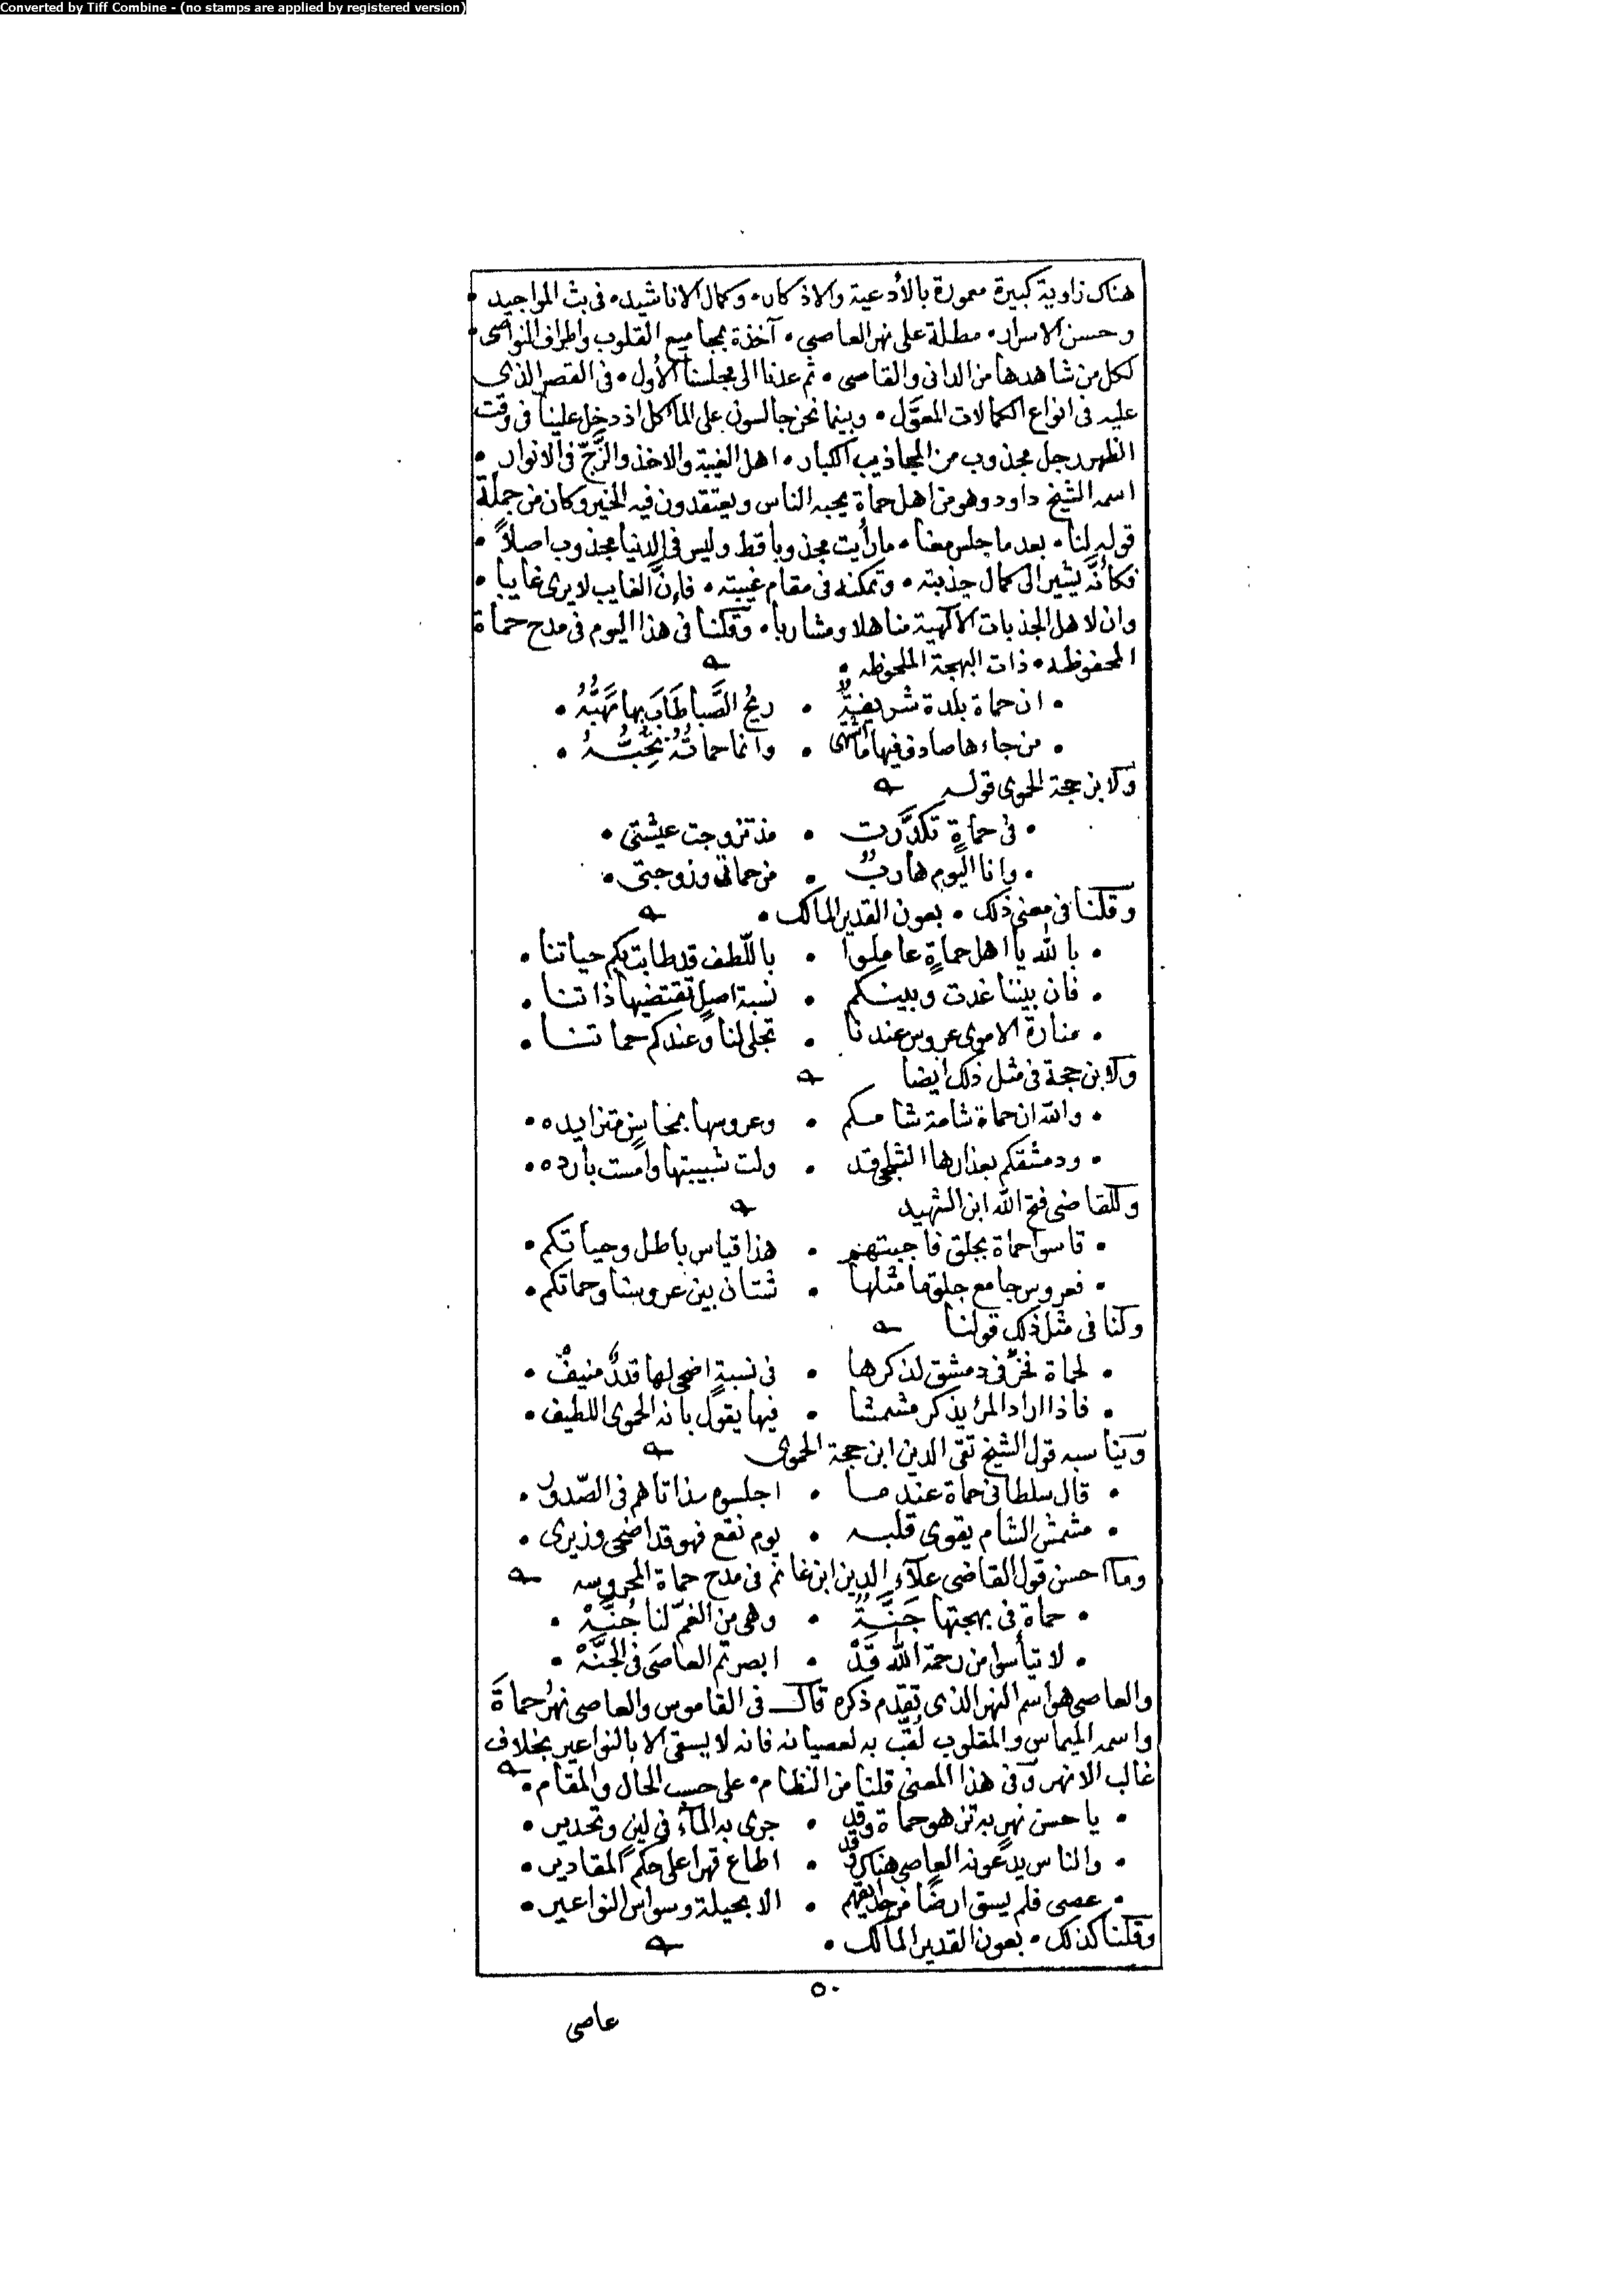 Converted by Tiff Combine - (no stamps are applied by registered version)
هناك زاوية كبيرة معمورة بالأدعية والاذكار • وكمال الاناشيد • فى بث المواجيد •
وحسن الاسرار • مطلة على نهر العاصي • آخذة بمجاميع القلوب واطراف النواصى •
لكل من شاهدها من الدانى والقاصى • ثم عدنا الى مجلسنا الأول • فى القصر الذى
عليه فى انواع الكمالات المعوَّل • وبينما نحن جالسون على المأكل اذ دخل علينا فى وقت
الظهر رجل مجذوب من المجاذيب الكبار • اهل الغيبة والاخذ والزَّجّ فى الانوار •
اسمه الشيخ داود وهو من اهل حماة يحبه الناس ويعتقدون فيه الخير وكان من جملة
قوله لنا • بعد ما جلس معنا • ما رأيت مجذوبا قط وليس فى الدنيا مجذوب اصلاً •
فكأنَّه يشير الى كمال جذبته • وتمكنه فى مقام غيبته • فإنَّ الغايب لا يرى غايبا •
وان لاهل الجذبات الالهية مناهلا ومشاربا • وقلنا فى هذا اليوم فى مدح حماة
المحفوظه • ذات البهجة الملحوظه •
• ان حماة بلدة شريفةٌ • ريحُ الصَّبا طَابَ بها مَهَبُّهُ •
• من جاءها صادف فيها ما اشتهى • وانما حماتُهُ تُحِبُّهُ •
ولابن حجة الحموى قوله
• فى حماةٍ تكدَّرت • مذ تزوجت عيشتى •
• وانا اليوم هاربٌ • من حماتى وزوجتى •
وقلنا فى معنى ذلك • بعون القدير المالك •
• بالله يا اهل حماةٍ عاملوا • باللّطف قد طابت بكم حياتنا •
• فان بيننا غدت وبينكم • نسبة اصلٍ تقتضيها ذاتنا •
• منارة الاموى عروس عندنا • تجلى لنا وعندكم حماتنا •
ولابن حجة فى مثل ذلك ايضا
• والله ان حماة شامة شامكم • وعروسها بمحاسنٍ متزايده •
• ودمشقكم بعذارها الثلجى قد • ولت شبيبتها وامست بارده •
وللقاضى فتح الله ابن الشهيد
• قاسوا حماة بجلق فاجبتهم • هذا قياس باطل وحياتكم •
• فعروس جامع جلق ما مثلها • شتان بين عروسنا وحماتكم •
ولنا فى مثل ذلك قولنا
• لحماة فخرٌ فى دمشق لذكرها • فى نسبةٍ اضحى لها قدرٌ منيفٌ •
• فاذا اراد المرؤ يذكر مشمشا • فيها يقول بانه الحموى اللطيف •
ويناسبه قول الشيخ تقى الدين ابن حجة الحموى
• قال سلطانى حماة عندما • اجلسوه مذ اتاهم فى الصّدور •
• مشمش الشام يقوى قلبه • يوم نقع فهو قد اضحى وزيرى •
وما احسن قول القاضى علآء الدين ابن غانم فى مدح حماة المحروسه
• حماة فى بهجتها جَنَّةٌ • وهى من الغمّ لنا جُنَّةْ •
• لا تيأسوا من رحمة الله قَدْ • ابصرتم العاصىَ فى الجنَّةْ •
والعاصي هو اسم النهر الذى تقدم ذكره قال فى القاموس والعاصى نهرُ حماةَ
واسمه الميماس والمقلوب لُقّب به لعصيانه فانه لا يسقى الا بالنواعير بخلاف
غالب الانهر وفى هذا المعنى قلنا من النظام • على حسب الحال والمقام •
• يا حسن نهرٍ به تزهو حماة وقد • جرى به المآء فى لينٍ وتحدير •
• والناس يدعونه العاصى هناك وقد • اطاع قهرا على حكم المقادير •
• عصى فلم يسق ارضًا من حدايقهم • الا بحيلة وسواس النواعير •
وقلنا كذلك • بعون القدير المالك •
٥٠
عاصى